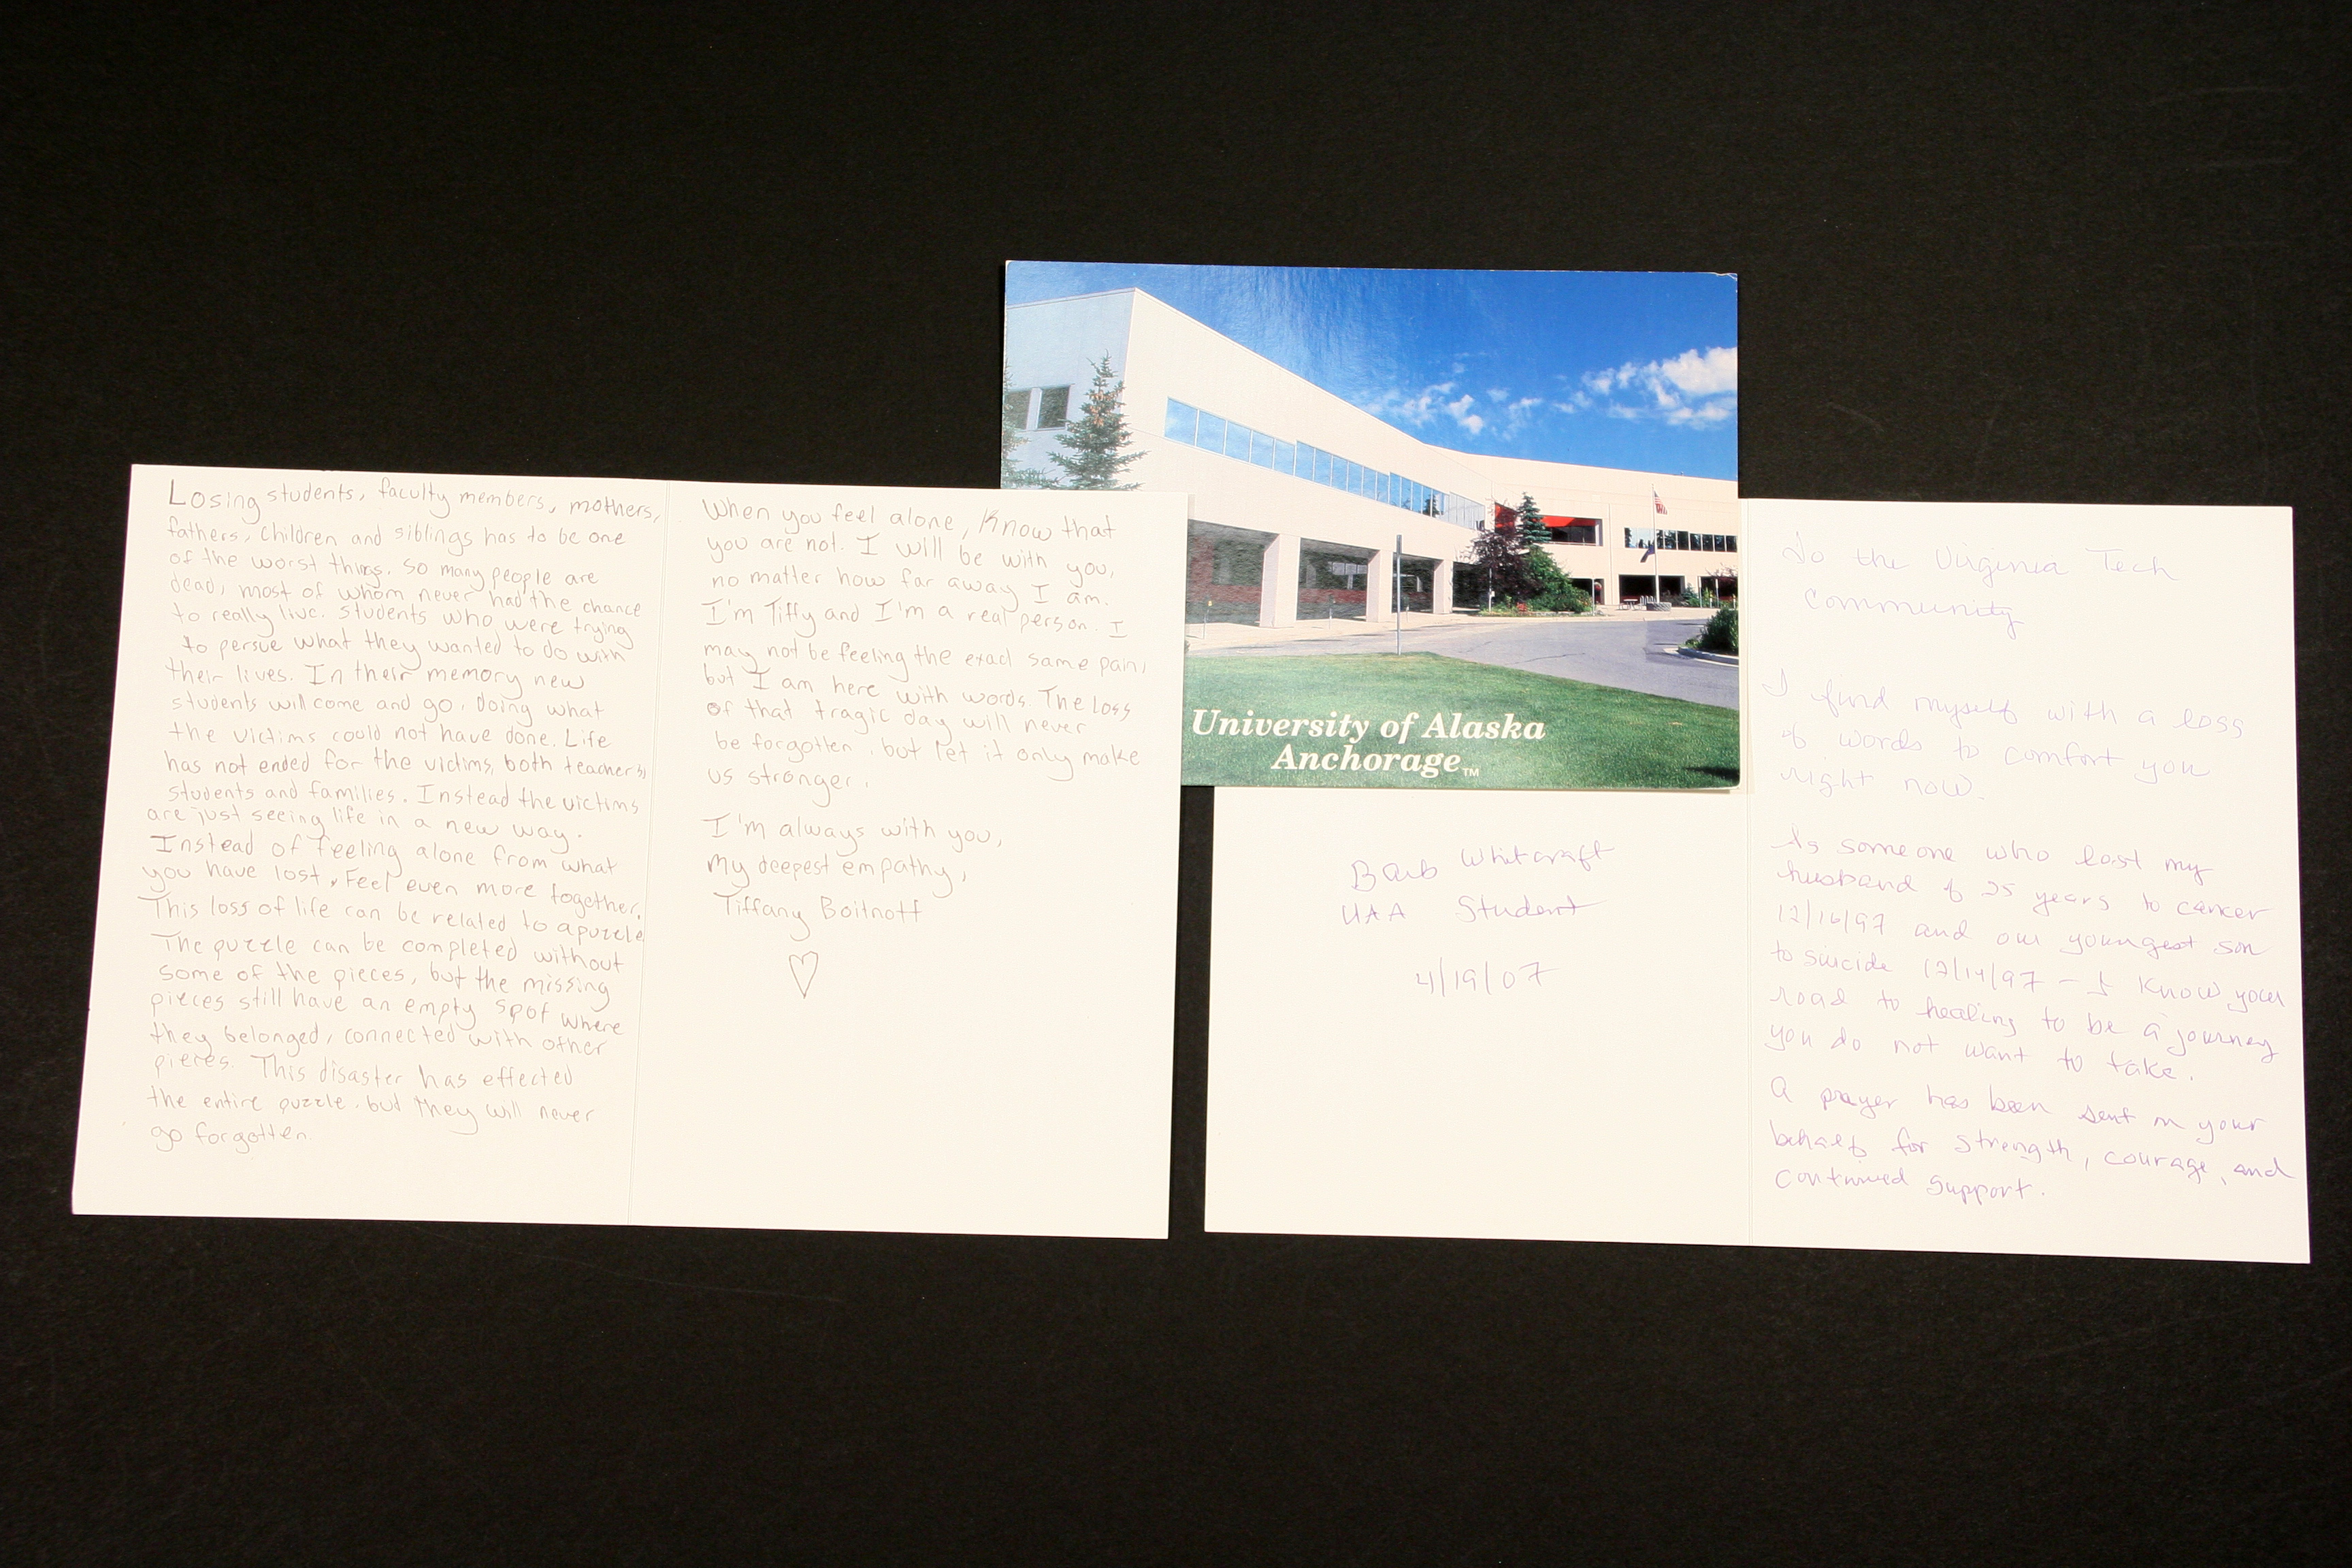 Losing students, faculty members, mothers,
fathers, children and siblings has to be one
of the worst things. So many people are
dead, most of whom never had the chance
to really live. Students who were trying
to persue what they wanted to do with
their lives. In their memory new
students will come and go, doing what
the victims could not have done. Life
has not ended for the victims, both teachers,
students and families. Instead the victims
are just seeing life in a new way.
Instead of feeling alone from what
you have lost, Feel even more together.
This loss of life can be related to a puzzle.
The puzzle can be completed without
some of the pieces, but the missing
pieces still have an empty spot where
they belonged, connected with other
pieces. This disaster has effected
the entire puzzle, but they will never
go forgotten.
When you feel alone, Know that
you are not. I will be with you,
no matter how far away I am.
I'm Tiffy and I'm a real person. I
may not be feeling the exact same pain,
but I am here with words. The loss
of that tragic day will never
be forgotten, but let it only make
us stronger.
I'm always with you,
My deepest empathy,
Tiffany Boitnott
University of Alaska
Anchorage™
Barb Whitcraft
UAA Student
4/19/07
To the Virginia Tech
Community
I find myself with a loss
of words to comfort you
right now.
As someone who lost my
husband of 25 years to cancer
12/16/97 and our youngest son
to suicide 12/14/97 - I know your
road to healing to be a journey
you do not want to take.
A prayer has been sent in your
behalf for strength, courage, and
continued support.